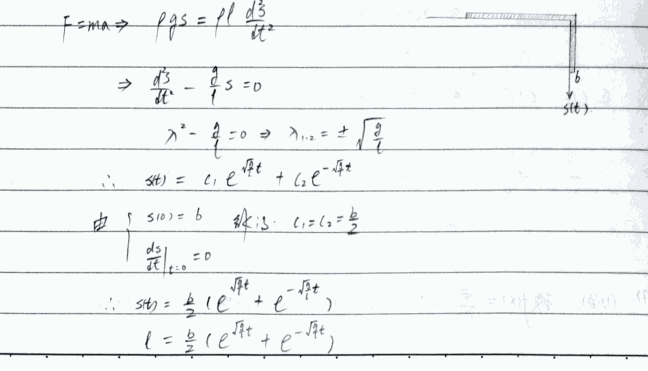 F=ma ⇒ ρgs = ρl d²s/dt²
b
s(t)
⇒ d²s/dt² - g/l s = 0
λ² - g/l = 0 ⇒ λ₁,₂ = ± √(g/l)
∴ s(t) = c₁ e^(√(g/l) t) + c₂ e^(-√(g/l) t)
由 { s(0) = b c₁ = c₂ = b/2
ds/dt |t=0 = 0
∴ s(t) = b/2 ( e^(√(g/l) t) + e^(-√(g/l) t) )
l = b/2 ( e^(√(g/l) t) + e^(-√(g/l) t) )